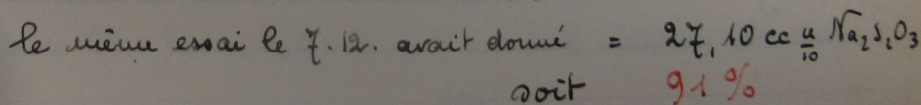 le même essai le 7.12. avait donné = 27,10 cc n/10 Na₂S₂O₃
soit 91 %